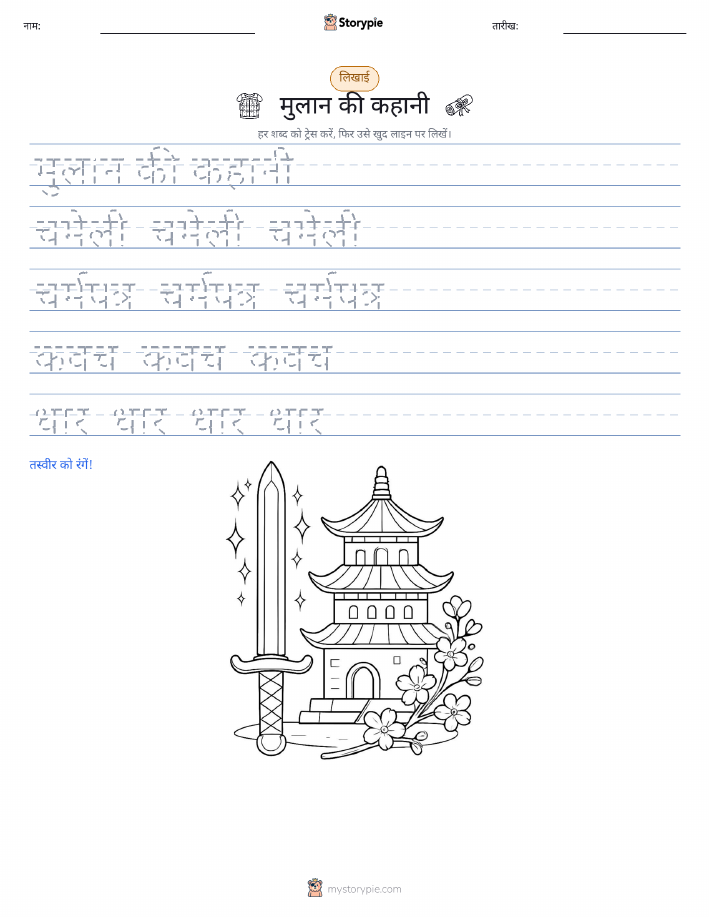 नाम: Storypie तारीख:
लिखाई
मुलान की कहानी
हर शब्द को ट्रेस करें, फिर उसे खुद लाइन पर लिखें।
मुलान की कहानी
चमेली चमेली चमेली
चर्मपत्र चर्मपत्र चर्मपत्र
कवच कवच कवच
धार धार धार धार
तस्वीर को रंगें!
mystorypie.com